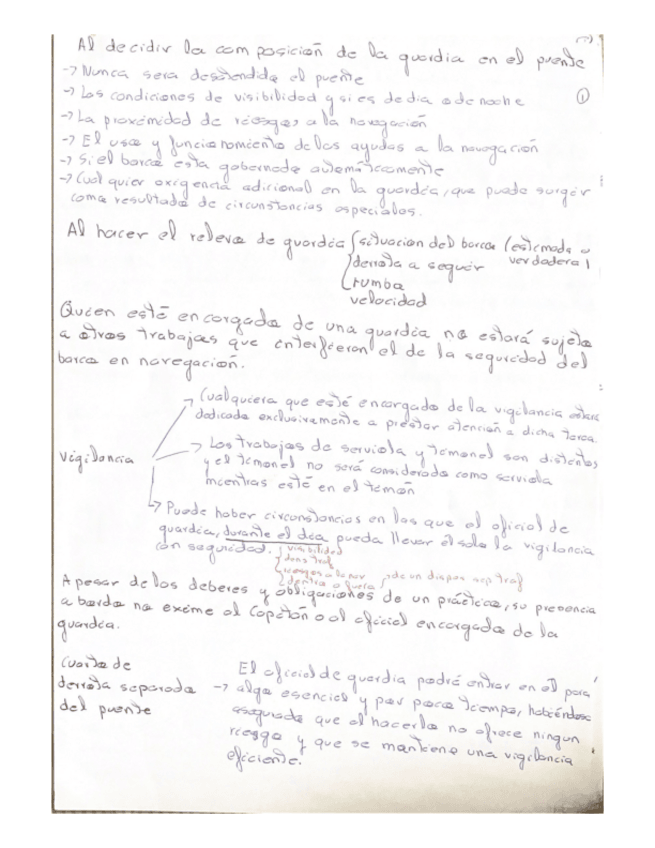 Al decidir la composición de la guardia en el puente
-> Nunca sera desatendido el puente
-> Las condiciones de visibilidad y si es de dia o de noche
①
-> La proximidad de riesgos a la navegación
-> El uso y funcionamiento de las ayudas a la navegación
-> Si el barco esta gobernado automáticamente
-> Cualquier exigencia adicional en la guardia, que puede surgir
como resultado de circunstancias especiales.
Al hacer el relevo de guardia { situacion del barco (estimada o
verdadera)
derrota a seguir
rumbo
velocidad
Quien esté encargado de una guardia no estará sujeto
a otros trabajos que interfieran el de la seguridad del
barco en navegación.
Vigilancia
-> Cualquiera que esté encargado de la vigilancia estará
dedicado exclusivamente a prestar atención a dicha tarea.
-> Los trabajos de serviola y timonel son distintos
y el timonel no será considerado como serviola
mientras esté en el timón
-> Puede haber circunstancias en las que el oficial de
guardia, durante el día pueda llevar él solo la vigilancia
con seguridad. { visibilidad
dens traf
riesgos a la nav
dentro o fuera } de un dispos sep traf
A pesar de los deberes y obligaciones de un práctico, su presencia
a bordo no exime al Capitán o al oficial encargado de la
guardia.
Cuarto de
derrota separado
del puente
El oficial de guardia podrá entrar en él para
-> algo esencial y por poco tiempo, habiéndose
asegurado que al hacerlo no ofrece ningun
riesgo y que se mantiene una vigilancia
eficiente.